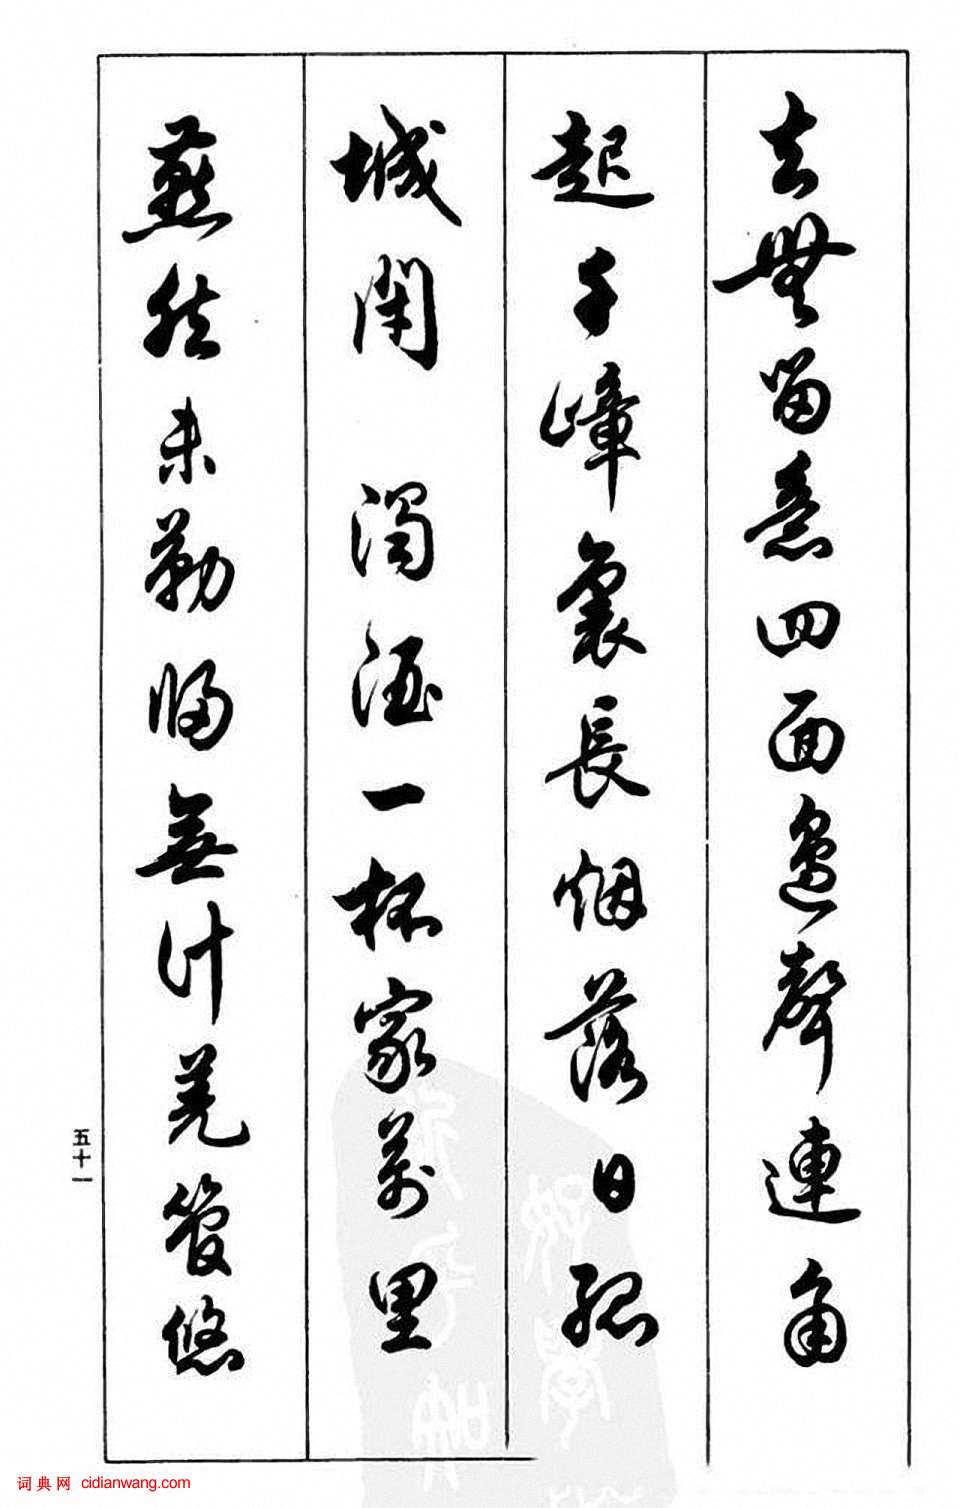 去無留意四面邊聲連角
起千嶂裏長烟落日孤
城閉 濁酒一杯家萬里
燕然未勒歸無計羌管悠
五十一
词典网 cidianwang.com